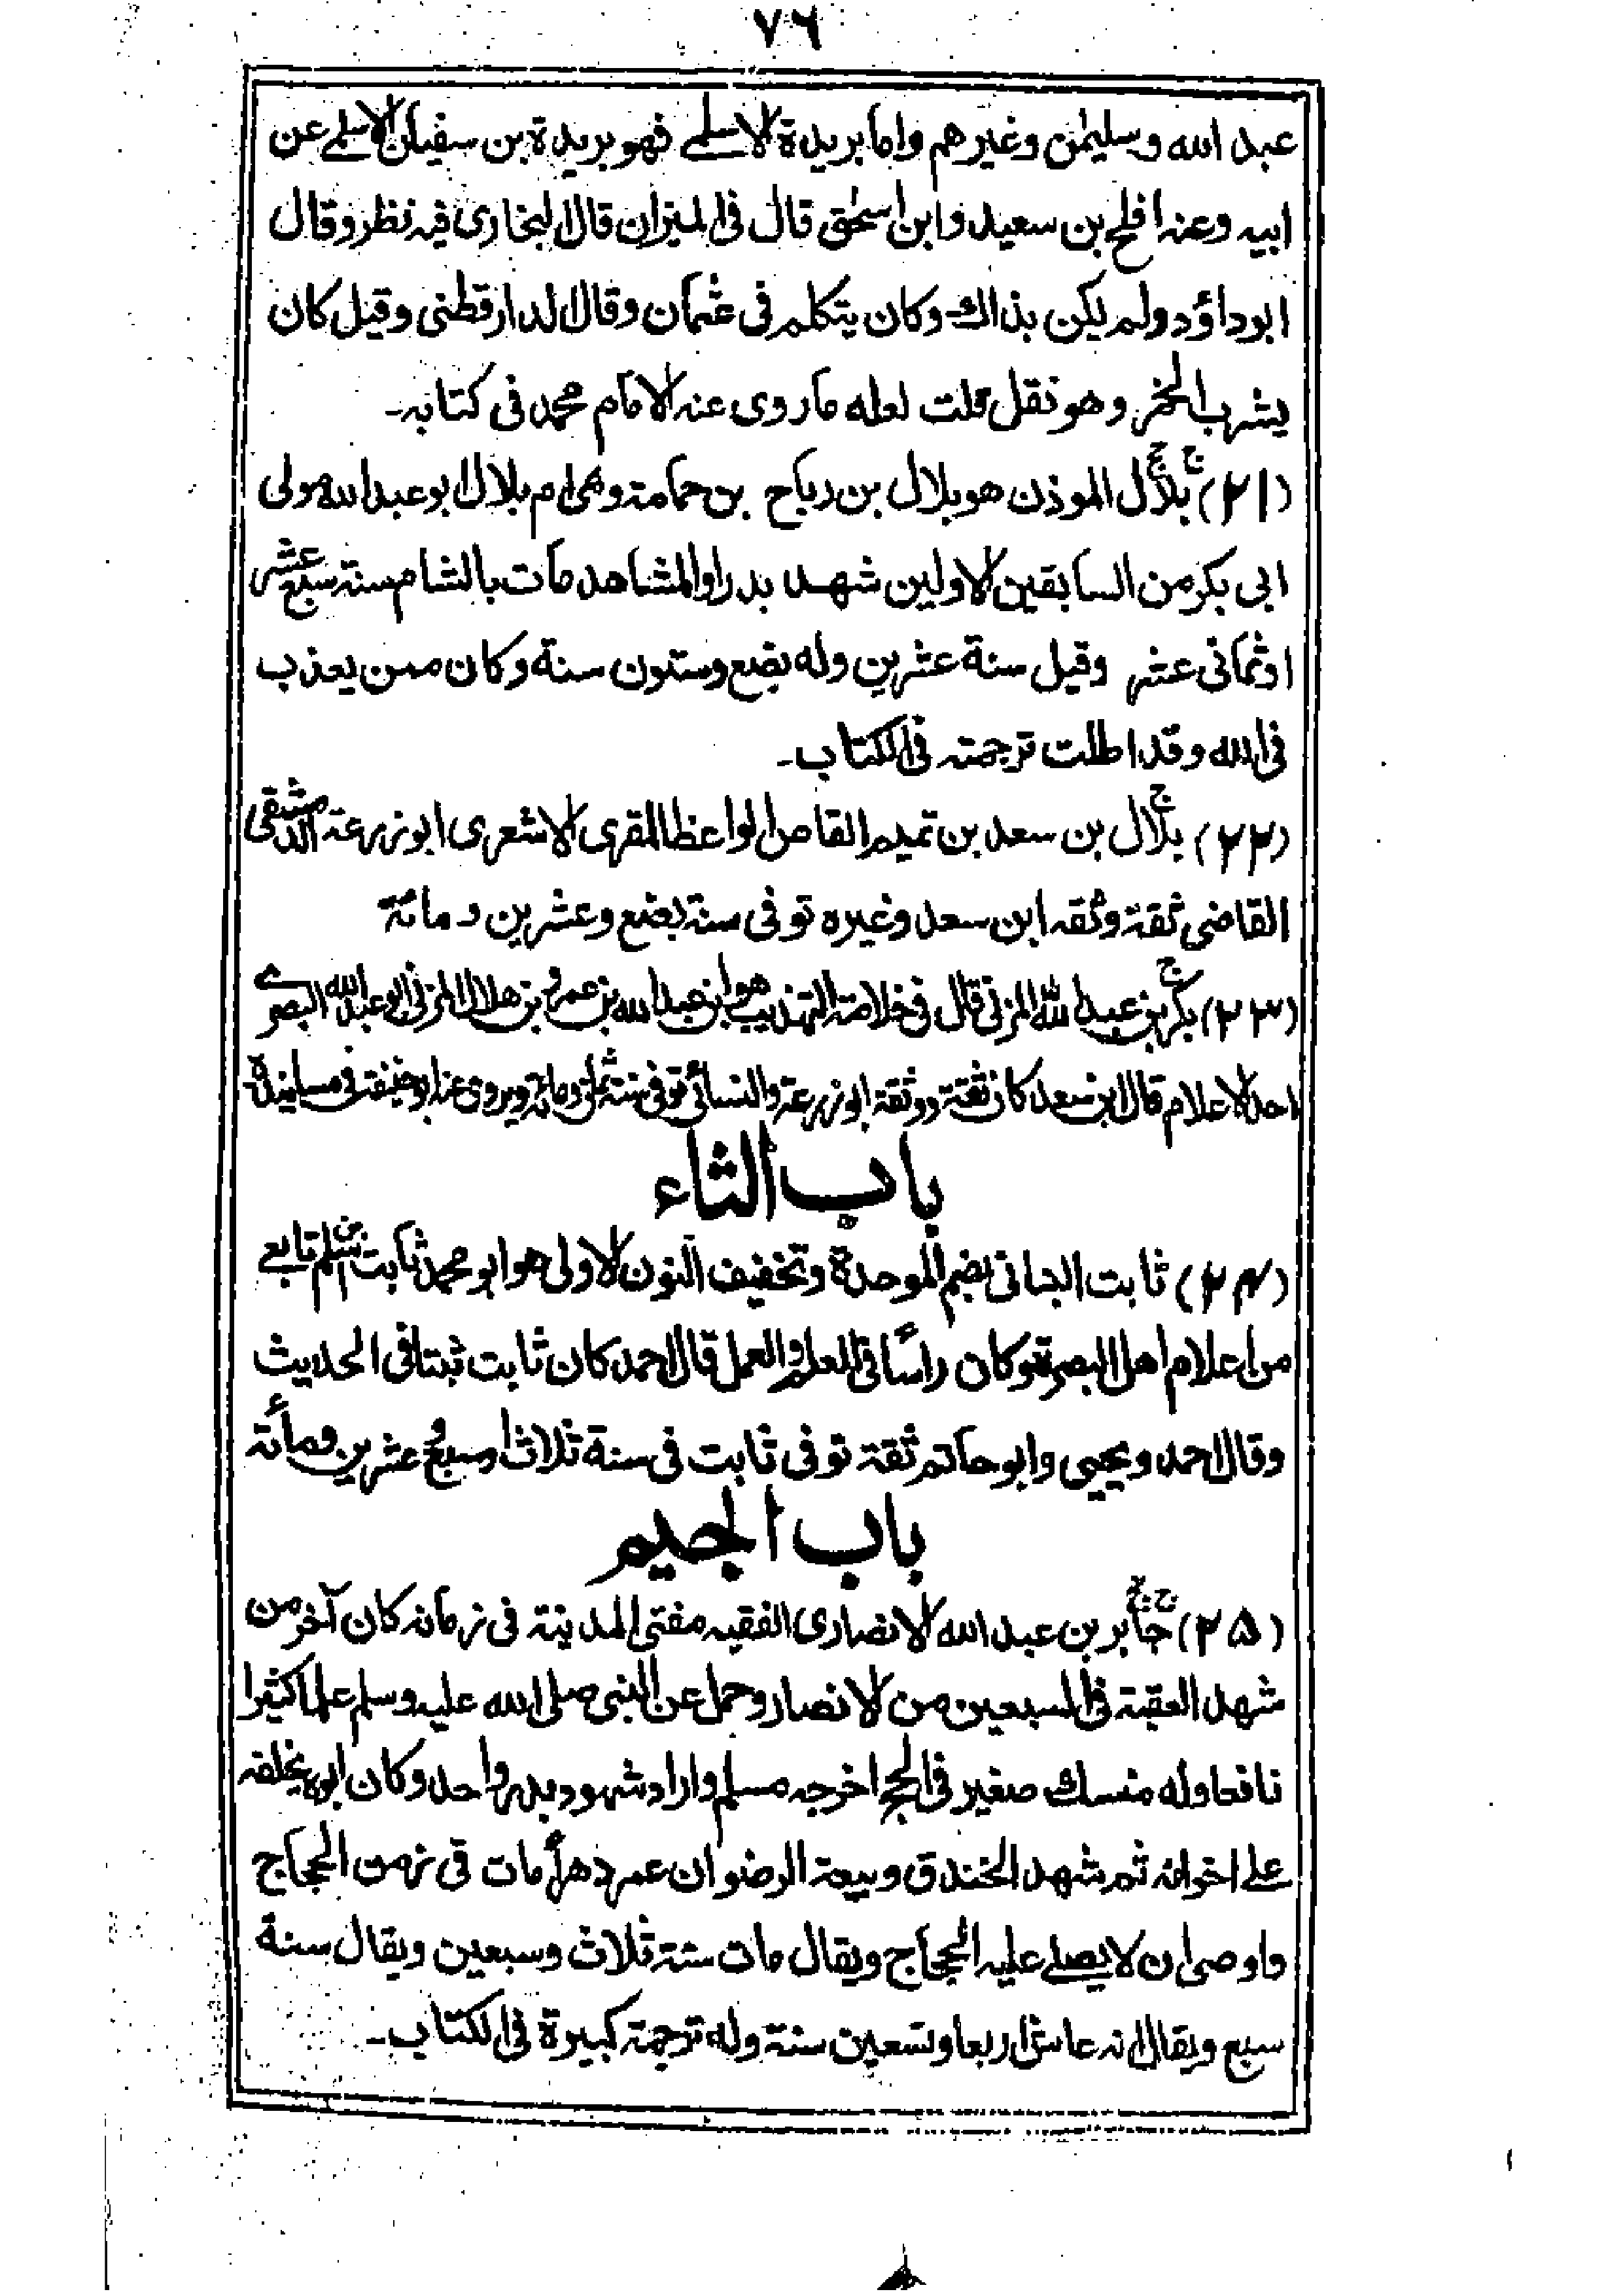 ٧٦
عبد الله وسليمٰن وغيرهم واما بريدة الاسلمے فهو بريدة بن سفيان الاسلمے عن
ابيه وعنه افلح بن سعيد وابن اسحٰق قال فى الميزان قال البخارى فيه نظر وقال
ابوداؤد ولم يكن بذاك وكان يتكلم فى عثمان وقال الدارقطنى وقيل كان
يشرب الخمر وهو نقل قلت لعله ماروى عنه الامام محمد فى كتابه۔
(٢١) بلال الموذن هو بلال بن رباح بن حمامة وهى ام بلال ابو عبد الله مولى
ابى بكر من السابقين الاولين شهد بدرا والمشاهد مات بالشام سنة سبع عشر
اوثمانى عشر وقيل سنة عشرين وله بضع وستون سنة وكان ممن يعذب
فى الله وقد اطلت ترجمته فى الكتاب۔
(٢٢) بلال بن سعد بن تميم القاص الواعظ المقرى الاشعرى ابوزرعة الدمشقى
القاضى ثقة وثقه ابن سعد وغيره توفى سنة بضع وعشرين ومائة
(٢٣) بكر بن عبد الله المزنى قال فى خلاصة التهذيب هو ابن عبد الله بن عمرو بن هلال المزنى ابو عبد الله البصرے
احد الاعلام قال ابن سعد كان ثقة ووثقه ابوزرعة والنسائى توفى سنة ثمان ومائة ويروى عنه ابوحنيفة فى مسانيده۔
باب الثاء
(٢٤) ثابت البنانى بضم الموحدة وتخفيف النون الاولى هو ابو محمد ثابت بن اسلم تابعے
من اعلام اهل البصرة وكان رأسا فى العلم والعمل قال احمد كان ثابت ثبتا فى الحديث
وقال احمد ويحيى وابوحاتم ثقة توفى ثابت فى سنة ثلاث او سبع وعشرين ومأئة
باب الجيم
(٢٥) جابر بن عبد الله الانصارى الفقيه مفتى المدينة فى زمانه كان آخر من
شهد العقبة فى السبعين من الانصار وحمل عن النبى صلى الله عليه وسلم علما كثيرا
نافعا وله منسك صغير فى الحج اخرجه مسلم واراد شهود بدر واحد وكان ابوه يخلفه
علے اخواته ثم شهد الخندق وبيعة الرضوان عمر دهرأ مات فى زمن الحجاج
واوصى ان لا يصلے عليه الحجاج ويقال مات سنة ثلاث وسبعين ويقال سنة
سبع ويقال انه عاش اربعا وتسعين سنة وله ترجمة كبيرة فى الكتاب۔